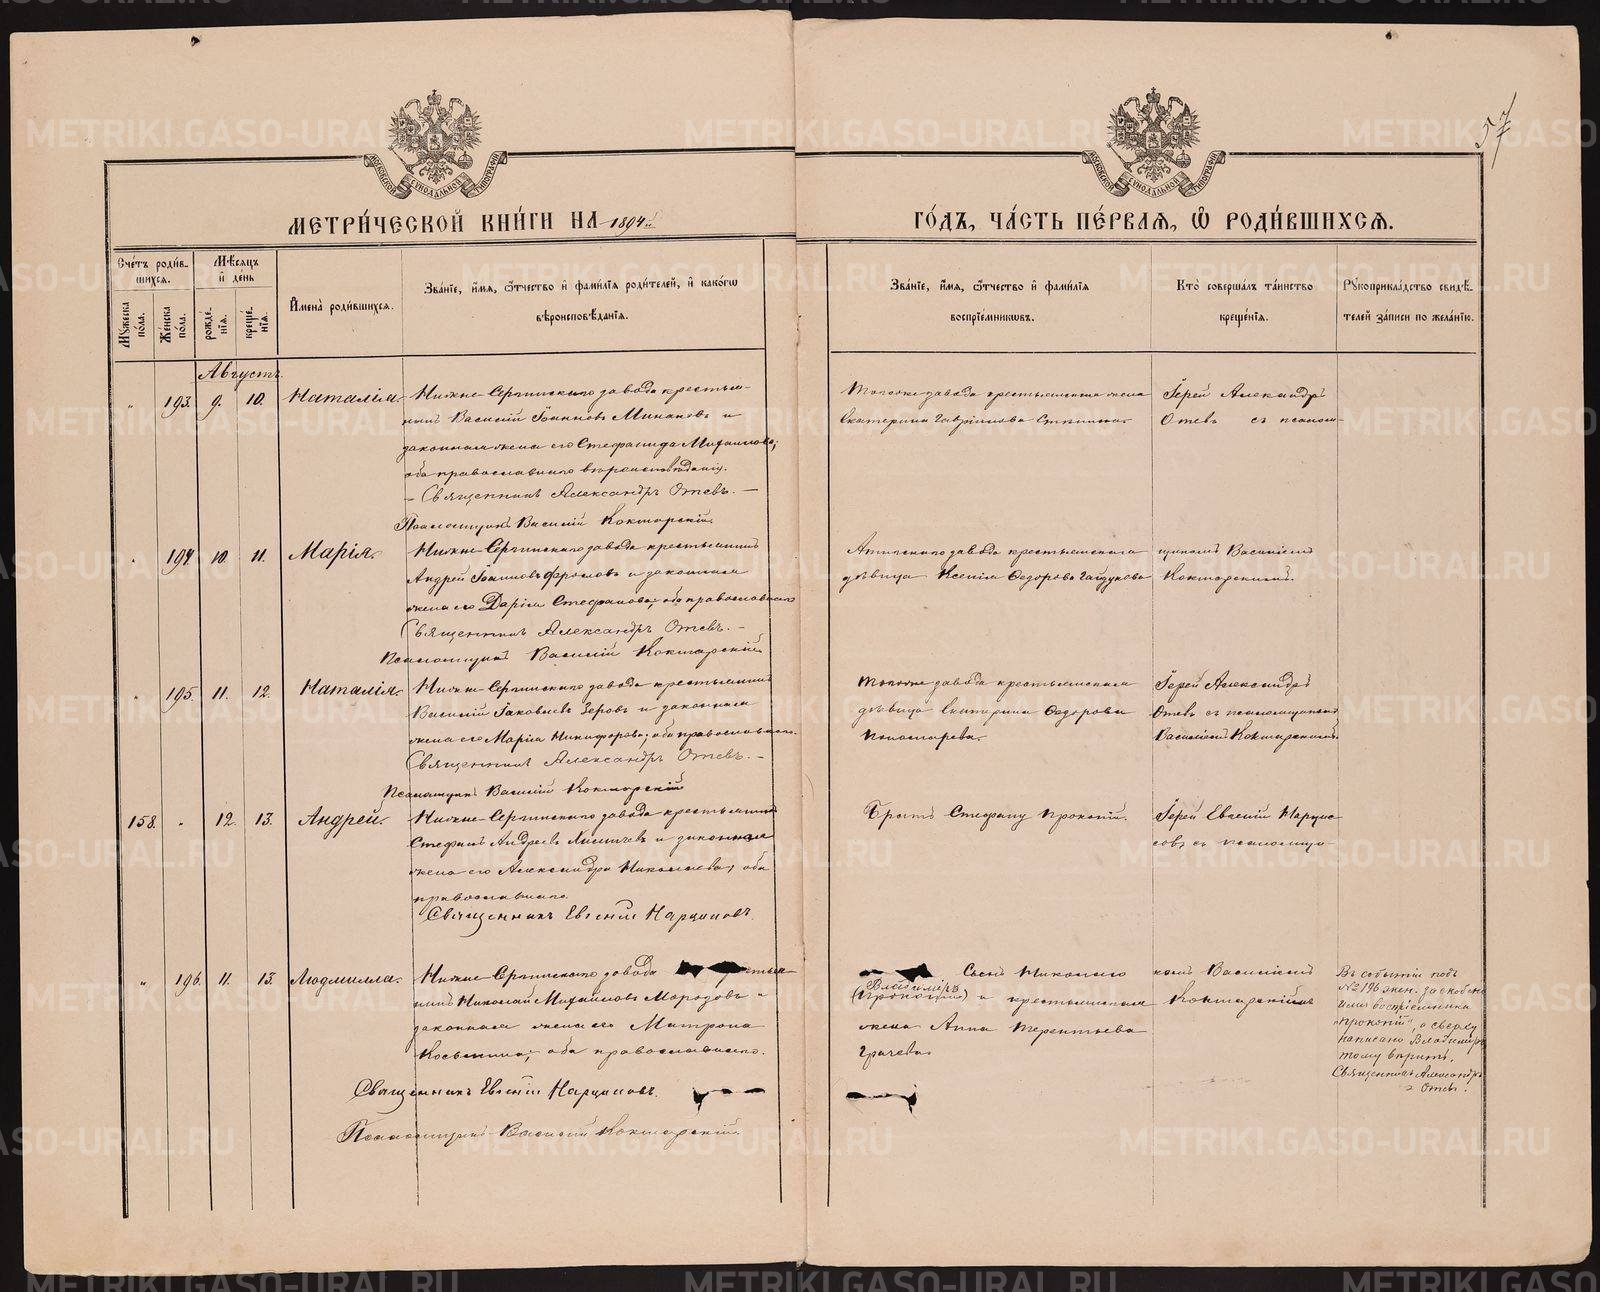 57
МОСКОВСКОЙ СѴНОДАЛЬНОЙ ТИПОГРАФІИ
МОСКОВСКОЙ СѴНОДАЛЬНОЙ ТИПОГРАФІИ
МЕТРИ́ЧЕСКОЙ КНИ́ГИ НА 1894й
ГО́ДЪ, ЧА́СТЬ ПЕ́РВАЯ, Ѽ РОДИ́ВШИХСЯ.
Сче́тъ роди́в-
шихся.
Мꙋжеска по́ла.
Же́нска по́ла.
Мѣ́сяцъ
и҆ де́нь
рожде́-
нїя.
креще́-
нїя.
И҆мена̀ роди́вшихся.
Зва́нїе, и҆́мя, ѻ҆́тчество и҆ фами́лїѧ роди́телей, и҆ како́гѡ
вѣроисповѣ́данїя.
Зва́нїе, и҆́мя, ѻ҆́тчество и҆ фами́лїѧ
воспрїе́мникѡвъ.
Кто̀ соверша́лъ та́инство
креще́нїя.
Рꙋкоприкла́дство свидѣ́-
телей за́писи по жела́нїю.
Августъ.
193. 9. 10. Наталія.
Нижне-Сергинскаго завода крестья-
нинъ Василій Іоанновъ и
законная жена его Стефанида Михаилова;
оба православнаго вѣроисповѣданія.
Священникъ Александръ Отевъ.
Псаломщикъ Василій Кокшарскій.
Того же завода крестьянская жена
Екатерина Гавріилова
Іерей Александръ
Отевъ съ псалом-
194. 10. 11. Марія.
Нижне-Сергинскаго завода крестьянинъ
Андрей и законная
жена его Дарія Стефанова; оба православнаго
Священникъ Александръ Отевъ.
Псаломщикъ Василій Кокшарскій.
Атигскаго завода крестьянская
дѣвица Ксенія Ѳедорова Гайдукова
щикомъ Василіемъ
Кокшарскимъ.
195. 11. 12. Наталія.
Нижне-Сергинскаго завода крестьянинъ
Василій Іаковлевъ Зеровъ и законная
жена его Марія Никифорова; оба православнаго.
Священникъ Александръ Отевъ.
Псаломщикъ Василій Кокшарскій
Того же завода крестьянская
дѣвица Екатерина Ѳедорова
Пономарева.
Іерей Александръ
Отевъ съ псаломщикомъ
Василіемъ Кокшарскимъ.
158. 12. 13. Андрей.
Нижне-Сергинскаго завода крестьянинъ
Стефанъ Андреевъ и законная
жена его Александра Николаева; оба
православнаго.
Священникъ Евгеній Нарциссовъ.
Братъ Стефану Прокопій.
Іерей Евгеній Нарцис-
совъ съ псаломщи-
196. 11. 13. Людмилла.
Нижне-Сергинскаго завода крестья-
нинъ Николай Михайловъ Мародовъ и
законная жена его Матрона
Косьмина; оба православнаго.
Священникъ Евгеній Нарциссовъ.
Псаломщикъ Василій Кокшарскій.
Сынъ Николаго
Владиміръ
(Прокопій) и крестьянская
жена Анна Терентьева
Грачева.
комъ Василіемъ
Кокшарскимъ
Въ событіи подъ
№ 196 жен. заскоблено
имя воспріемника
"Прокопій", а сверху
написано Владиміръ
тому вѣрить.
Священникъ Александръ
Отевъ.
METRIKI.GASO-URAL.RU